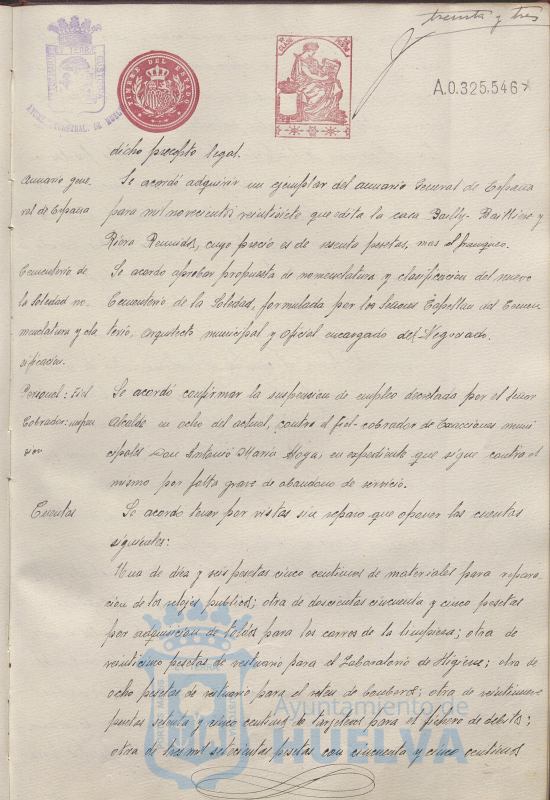 treinta y tres
TIMBRE DEL ESTADO
A.0.325,546*
dicho precepto legal.
Anuario gene
ral de España
Se acordó adquirir un ejemplar del anuario General de España
para mil novecientos veintisiete que edita la casa Bailly-Bailliere y
Riera Reunidos, cuyo precio es de pesetas, mas el franqueo.
Cementerio de
la Soledad no-
menclatura y cla
sificacion.
Se acordo aprobar propuesta de nomenclatura y clasificacion del nuevo
Cementerio de la Soledad, formulada por los Señores Capellan del Cemen
terio, Arquitecto municipal y Oficial encargado del Negociado.
Personal: Fiel
Cobrador: suspen
sión
Se acordó confirmar la suspension de empleo decretada por el Señor
Alcalde en ocho del actual, contra el fiel-cobrador de Exacciones muni
cipales Don Antonio Maria Moya, en expediente que sigue contra el
mismo por falta grave de abandono de servicio.
Cuentas
Se acordo tener por vistas sin reparo que oponer las cuentas
siguientes:
Una de diez y seis pesetas cinco centimos de materiales para repara-
cion de los relojes publicos; otra de doscientas cincuenta y cinco pesetas
por adquisicion de toldos para los carros de la limpieza; otra de
veinticinco pesetas de vestuario para el Laboratorio de Higiene; otra de
ocho pesetas de vestuario para el reten de bomberos; otra de veintinueve
pesetas setenta y cinco centimos de tarjetas para el fichero de debitos;
otra de tres mil setecientas pesetas con cincuenta y cinco centimos
Ayuntamiento de
HUELVA